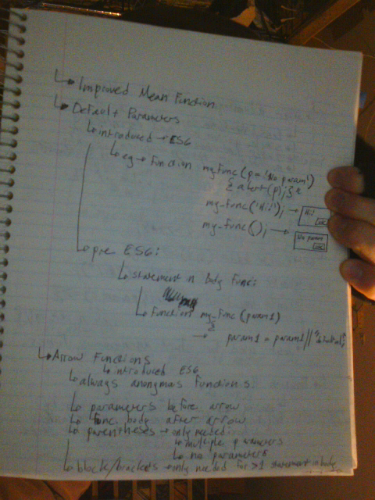 Improved Mean Function
Default Parameters
introduced → ES6
eg → function my_func (p = 'No param!')
{ alert(p); }
my_func('Hi'); → Hi
my_func(); → No param
pre ES6:
statement in body func:
function my_func (param1)
{
→ param1 = param1 ||
Arrow Functions
introduced ES6
always anonymous functions
parameters before arrow
func body after arrow
parentheses → only needed:
multiple parameters
no parameters
block/brackets → only needed for >1 statement in body